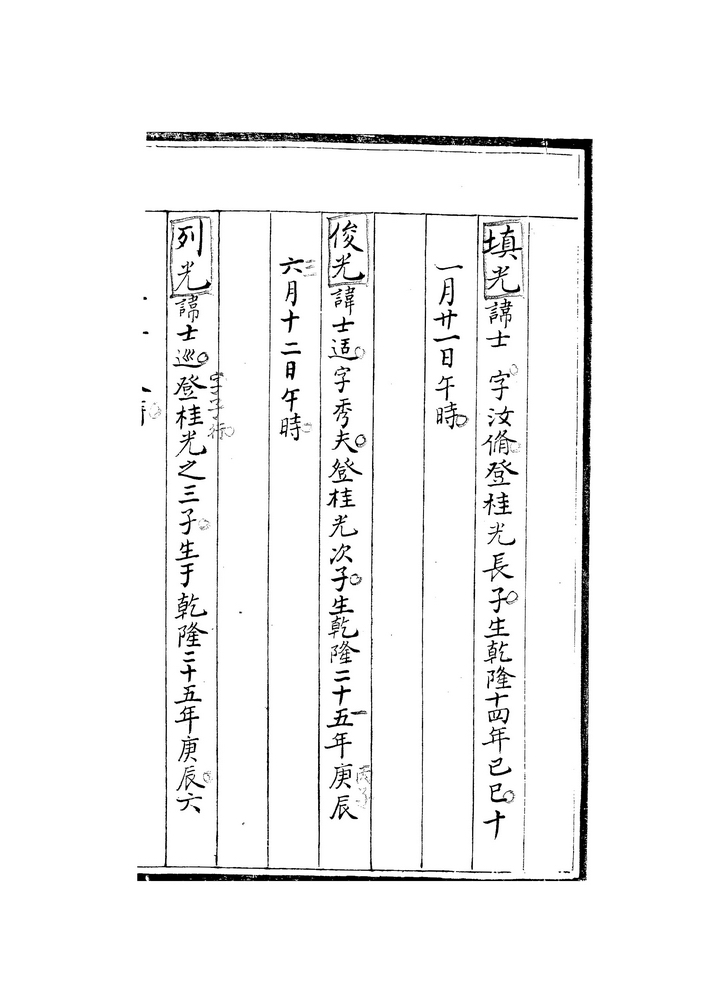 填光諱士 字汝脩登桂光長子生乾隆十四年己巳十
一月廿一日午時
俊光諱士适字秀夫登桂光次子生乾隆二十五年庚辰
一
丙子
六月十二日午時
三
列光諱士巡登桂光之三子生于乾隆二十五年庚辰六
字子